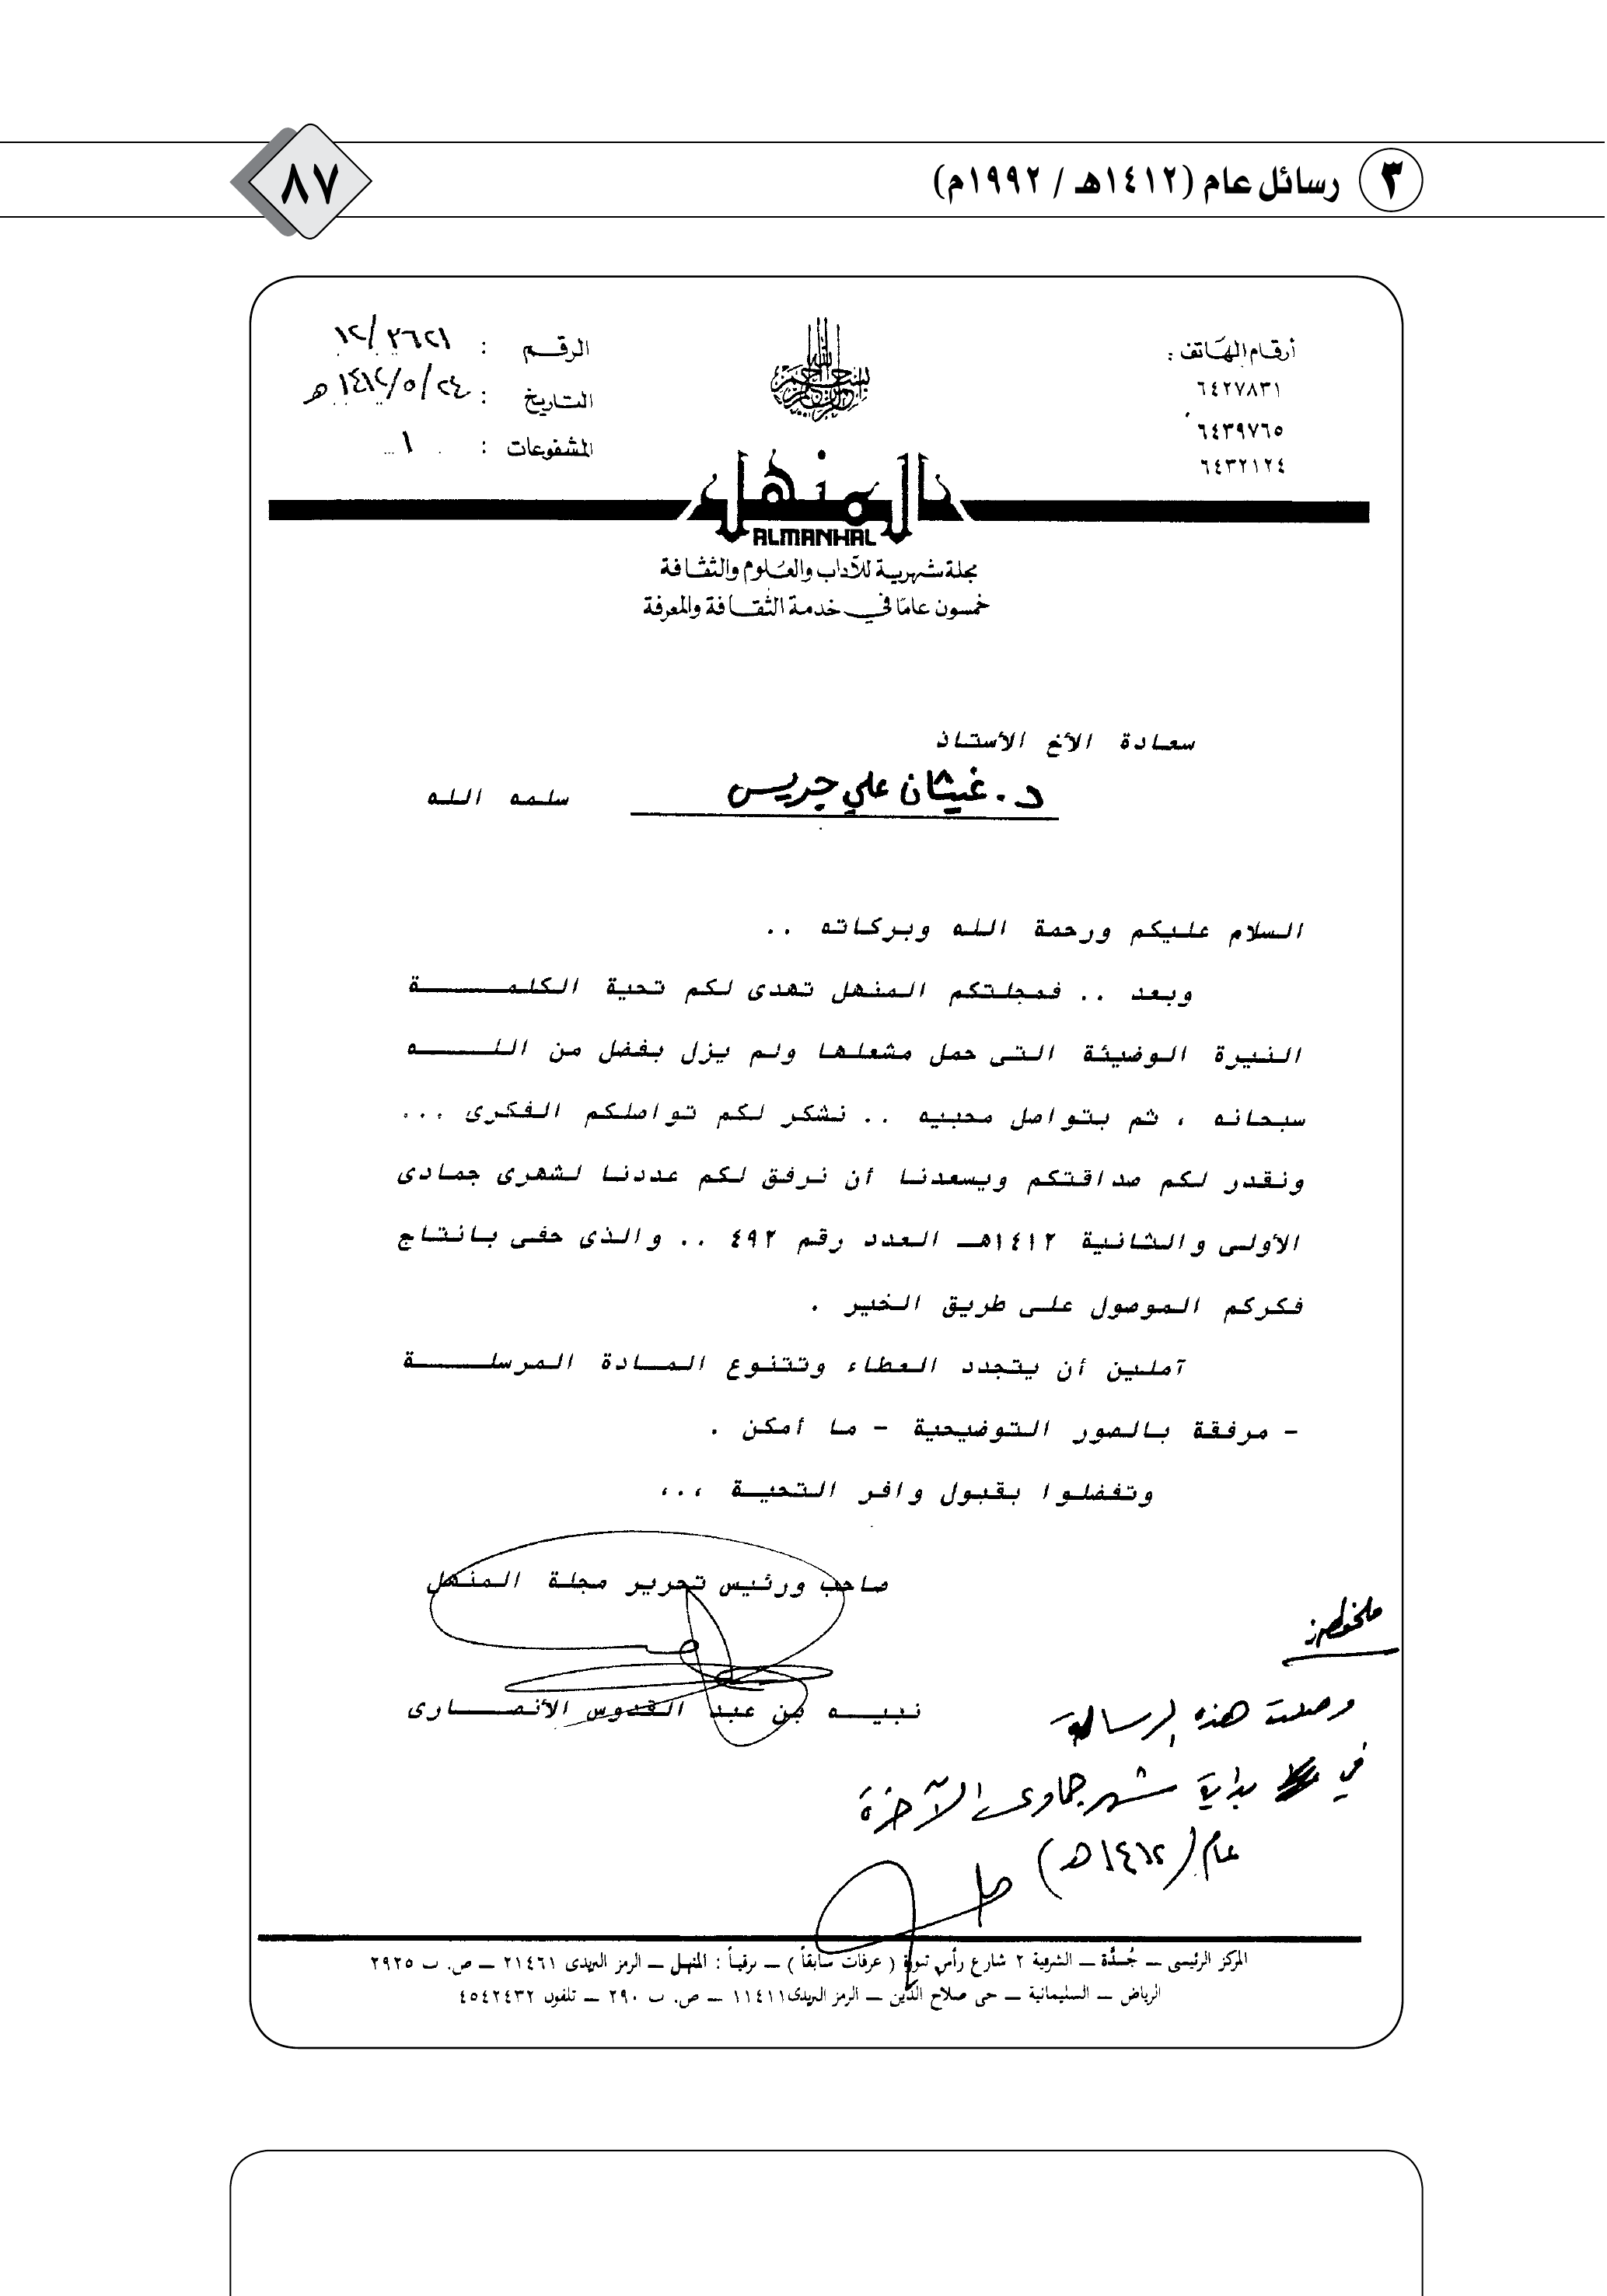 ٣ رسائل عام (١٤١٢هـ / ١٩٩٢م)
٨٧
أرقام الهاتف :
٦٤٢٧٨٣١
٦٤٣٩٧٦٥
٦٤٣٢١٢٤
بسم الله الرحمن الرحيم
الرقم : ١٢/٢٦٢١
التاريخ : ١٤١٢/٥/٢٤ هـ
المشفوعات : ١
المنهل
ALMANHAL
مجلة شهرية للآداب والعلوم والثقافة
خمسون عاما في خدمة الثقافة والمعرفة
سعادة الأخ الأستاذ
د. غيثان علي جريس سلمه الله
السلام عليكم ورحمة الله وبركاته ..
وبعد .. فمجلتكم المنهل تهدى لكم تحية الكلمة
النيرة الوضيئة التى حمل مشعلها ولم يزل بفضل من الله
سبحانه ، ثم بتواصل محبيه .. نشكر لكم تواصلكم الفكرى ...
ونقدر لكم صداقتكم ويسعدنا أن نرفق لكم عددنا لشهرى جمادى
الأولى والثانية ١٤١٢هـ العدد رقم ٤٩٢ .. والذى حفى بانتاج
فكركم الموصول على طريق الخير .
آملين أن يتجدد العطاء وتتنوع المادة المرسلة
- مرفقة بالصور التوضيحية - ما أمكن .
وتفضلوا بقبول وافر التحية ،،،
صاحب ورئيس تحرير مجلة المنهل
نبيه بن عبد القدوس الأنصارى
وصلت هذه الرسالة
في بداية شهر جمادى الآخرة
عام (١٤١٢هـ)
المركز الرئيسى ــ جُــدَّة ــ الشرفية ٢ شارع رأس تنورة ( عرفات سابقاً ) ــ برقيـاً : المنهـل ــ الرمز البريدى ٢١٤٦١ ــ ص. ب ٢٩٢٥
الرياض ــ السليمانية ــ حى صلاح الدين ــ الرمز البريدى١١٤١١ ــ ص. ب ٢٩٠ ــ تلفون ٤٥٤٢٤٣٢